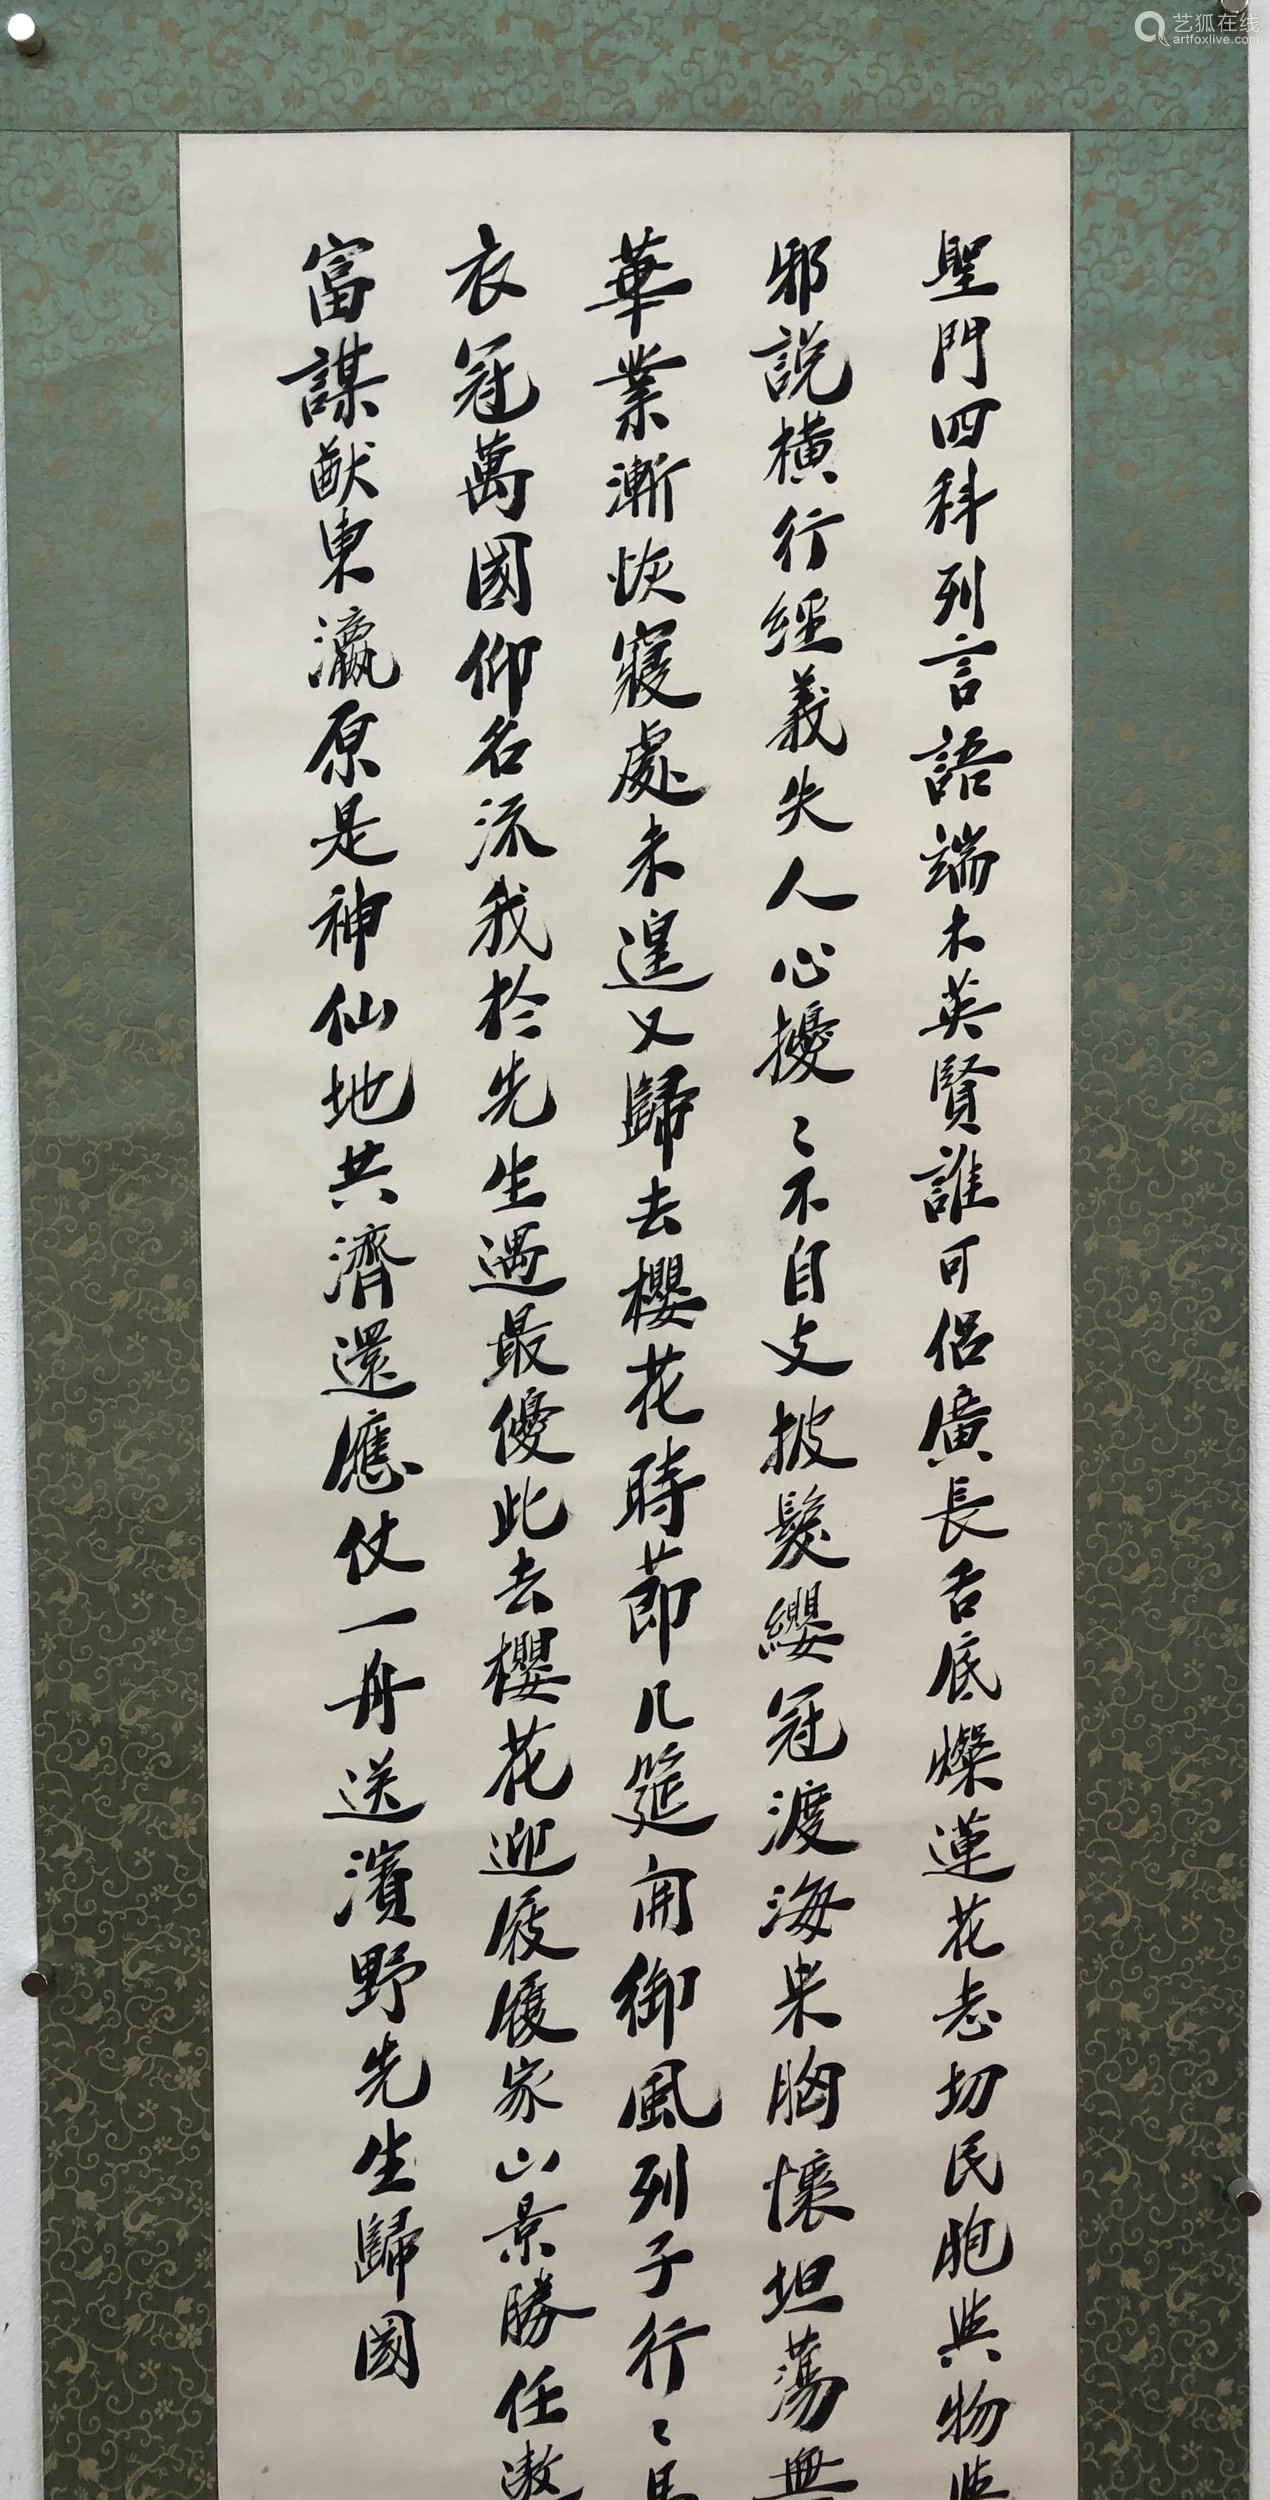 聖門四科列言語端木英賢誰可侶廣長舌底燦蓮花志切民胞與物
邪說橫行經義失人心擾〻不自支披髮纓冠渡海來胸懷坦蕩無
華業漸恢寢處未遑又歸去櫻花時節几筵開御風列子行〻
衣冠萬國仰名流我於先生遇最優此去櫻花迎屐履家山景勝任遨
富謀猷東瀛原是神仙地共濟還應仗一舟送濱野先生歸國
艺狐在线
artfoxlive.com